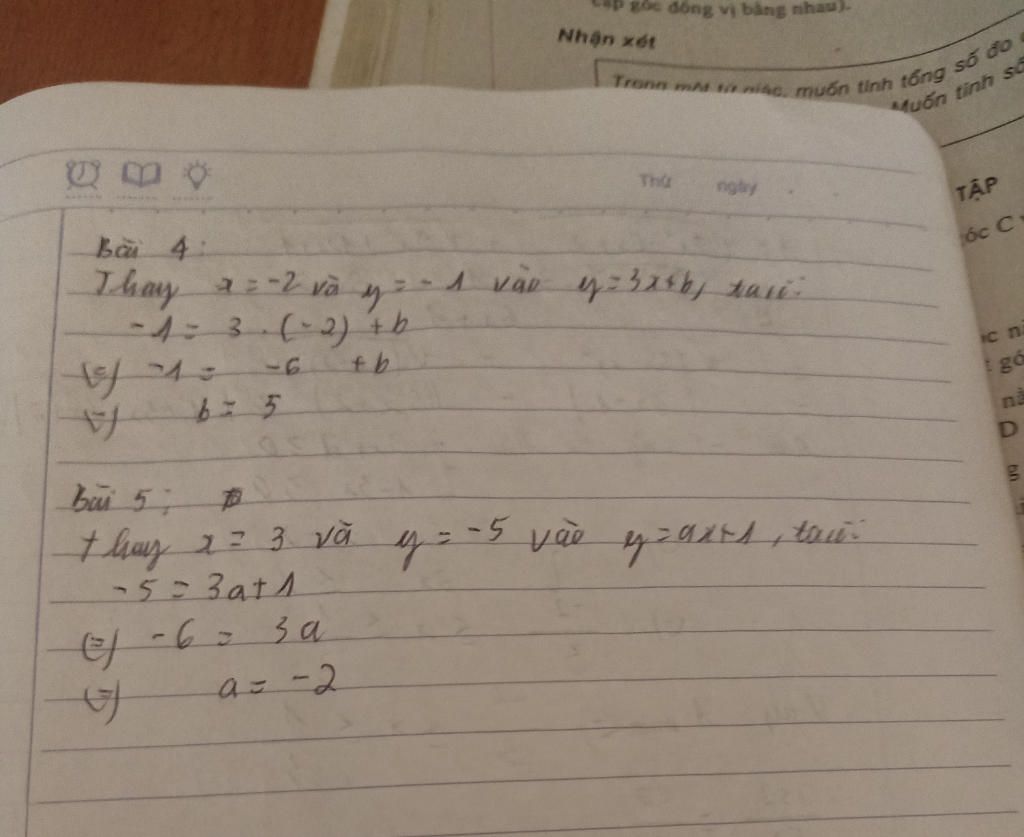 cặp góc đồng vị bằng nhau).
Nhận xét
Trong một tứ giác, muốn tính tổng số đo
Muốn tính số
TẬP
óc C
góc
D
g
Thứ ngày
Bài 4:
Thay x = -2 và y = -1 vào y = 3x+b, ta có:
-1 = 3 . (-2) + b
(=) -1 = -6 + b
(=) b = 5
Bài 5:
Thay x = 3 và y = -5 vào y = ax+1, ta có:
-5 = 3a+1
(=) -6 = 3a
(=) a = -2